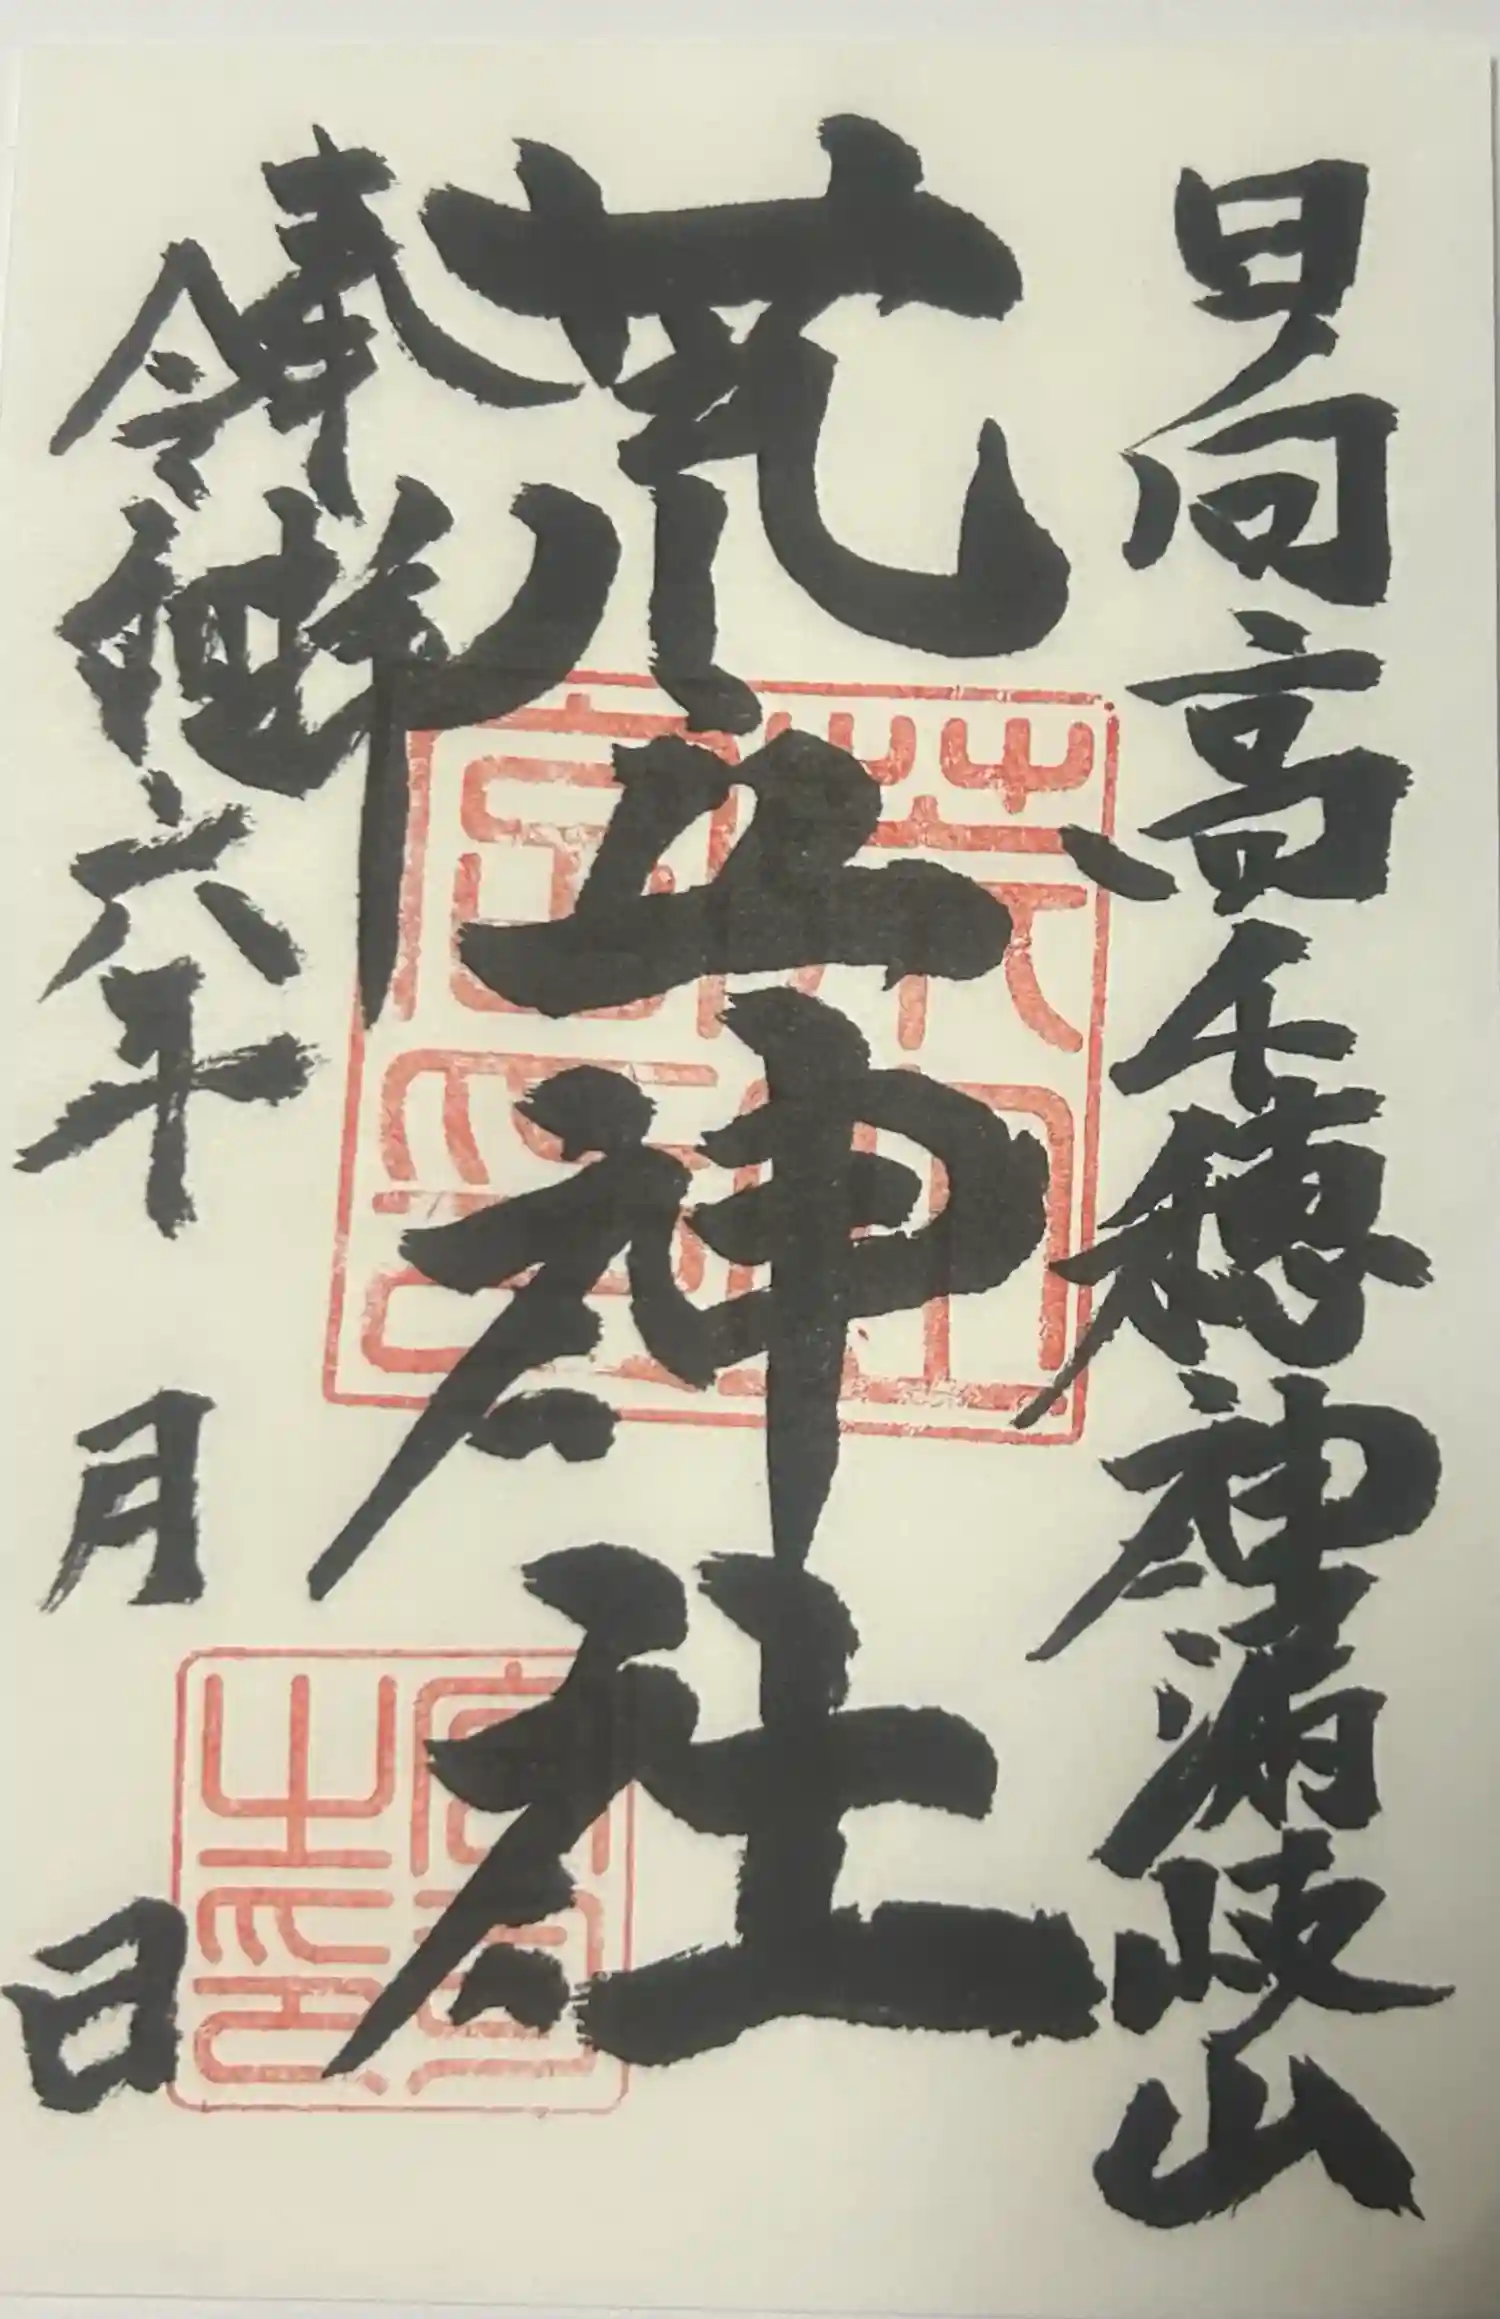 日向高千穂神漏岐山
荒立神社
奉拝
令和六年 月 日
宮司
之印